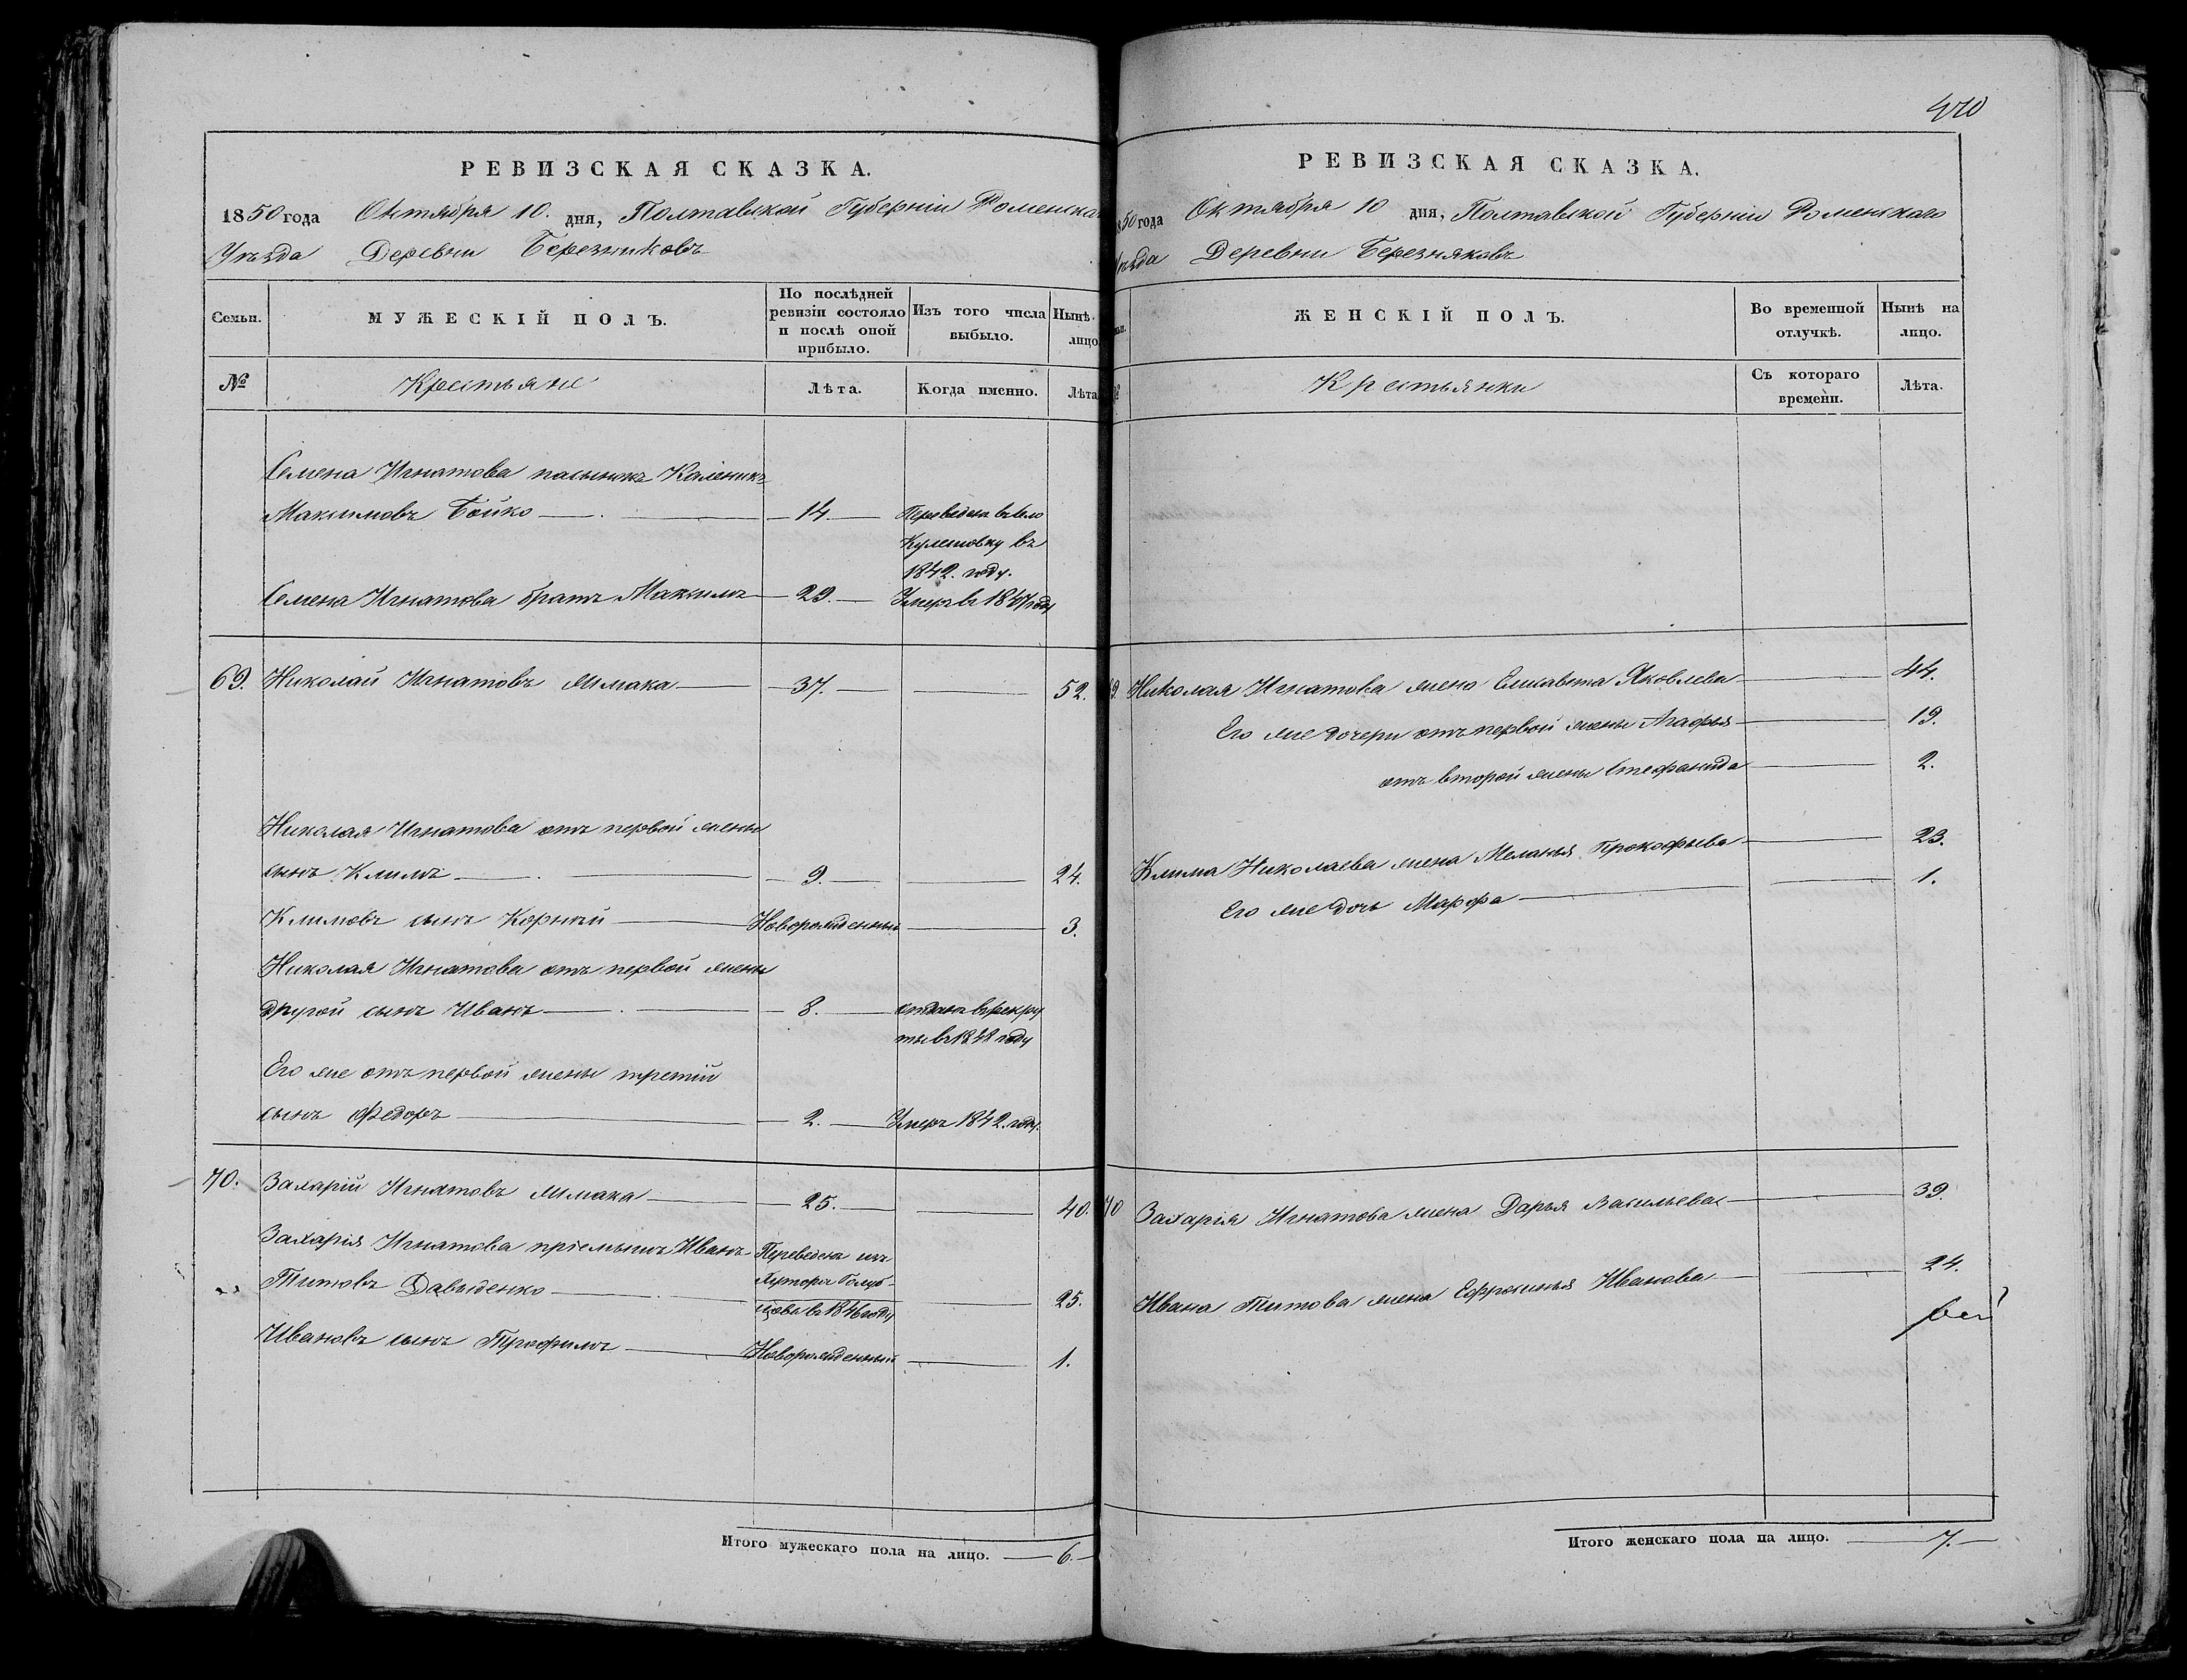 РЕВИЗСКАЯ СКАЗКА.
1850 года Октября 10. дня, Полтавской Губерніи Роменска
Уѣзда Деревни Березняковъ
Семьи.
МУЖЕСКІЙ ПОЛЪ.
По послѣдней
ревизіи состояло
и послѣ оной
прибыло.
Изъ того числа
выбыло.
Нынѣ
лицо
№
Крестьяне
Лѣта.
Когда именно.
Лѣта
Семена Игнатова пасынокъ Каленикъ
Максимовъ Бойко — 14. — Переведенъ въ село
Кулешовку въ
1842. году.
Семена Игнатова братъ Максимъ — 29. — Умеръ въ 1847 году
69. Николай Игнатовъ — 37. — 52.
Николая Игнатова отъ первой жены
сынъ Климъ — 9. — 24.
Климовъ сынъ Корнѣй — Новорожденный — 3.
Николая Игнатова отъ первой жены
другой сынъ Иванъ — 8. — отданъ въ рекру
ты въ 1848 году
Его же отъ первой жены третій
сынъ Федоръ — 2. — Умеръ 1842. году.
70. Захарій Игнатовъ — 25. — 40.
Захарія Игнатова пріемышъ Иванъ
Титовъ Давыденко — 25.
Переведенъ изъ
Хутора Голуб-
цовъ въ 1846 году
Ивановъ сынъ Трофимъ — Новорожденный — 1.
Итого мужескаго пола на лицо. — 6. —
470
РЕВИЗСКАЯ СКАЗКА.
850 года Октября 10 дня, Полтавской Губерніи Роменскаго
Уѣзда Деревни Березняковъ
ЖЕНСКІЙ ПОЛЪ.
Во временной
отлучкѣ.
Нынѣ на
лицо.
Крестьянки
Съ котораго
времени.
Лѣта.
9. Николая Игнатова жена Елисавета Яковлева — 44.
Его же дочери отъ первой жены Агафья — 19.
отъ второй жены Стефанида — 2.
Клима Николаева жена Меланья Прокофьева — 23.
Его же дочь Марфа — 1.
70 Захарія Игнатова жена Дарья Васильева — 39.
Ивана Титова жена Ефросинья Иванова — 24.
Итого женскаго пола на лицо. — 7. —